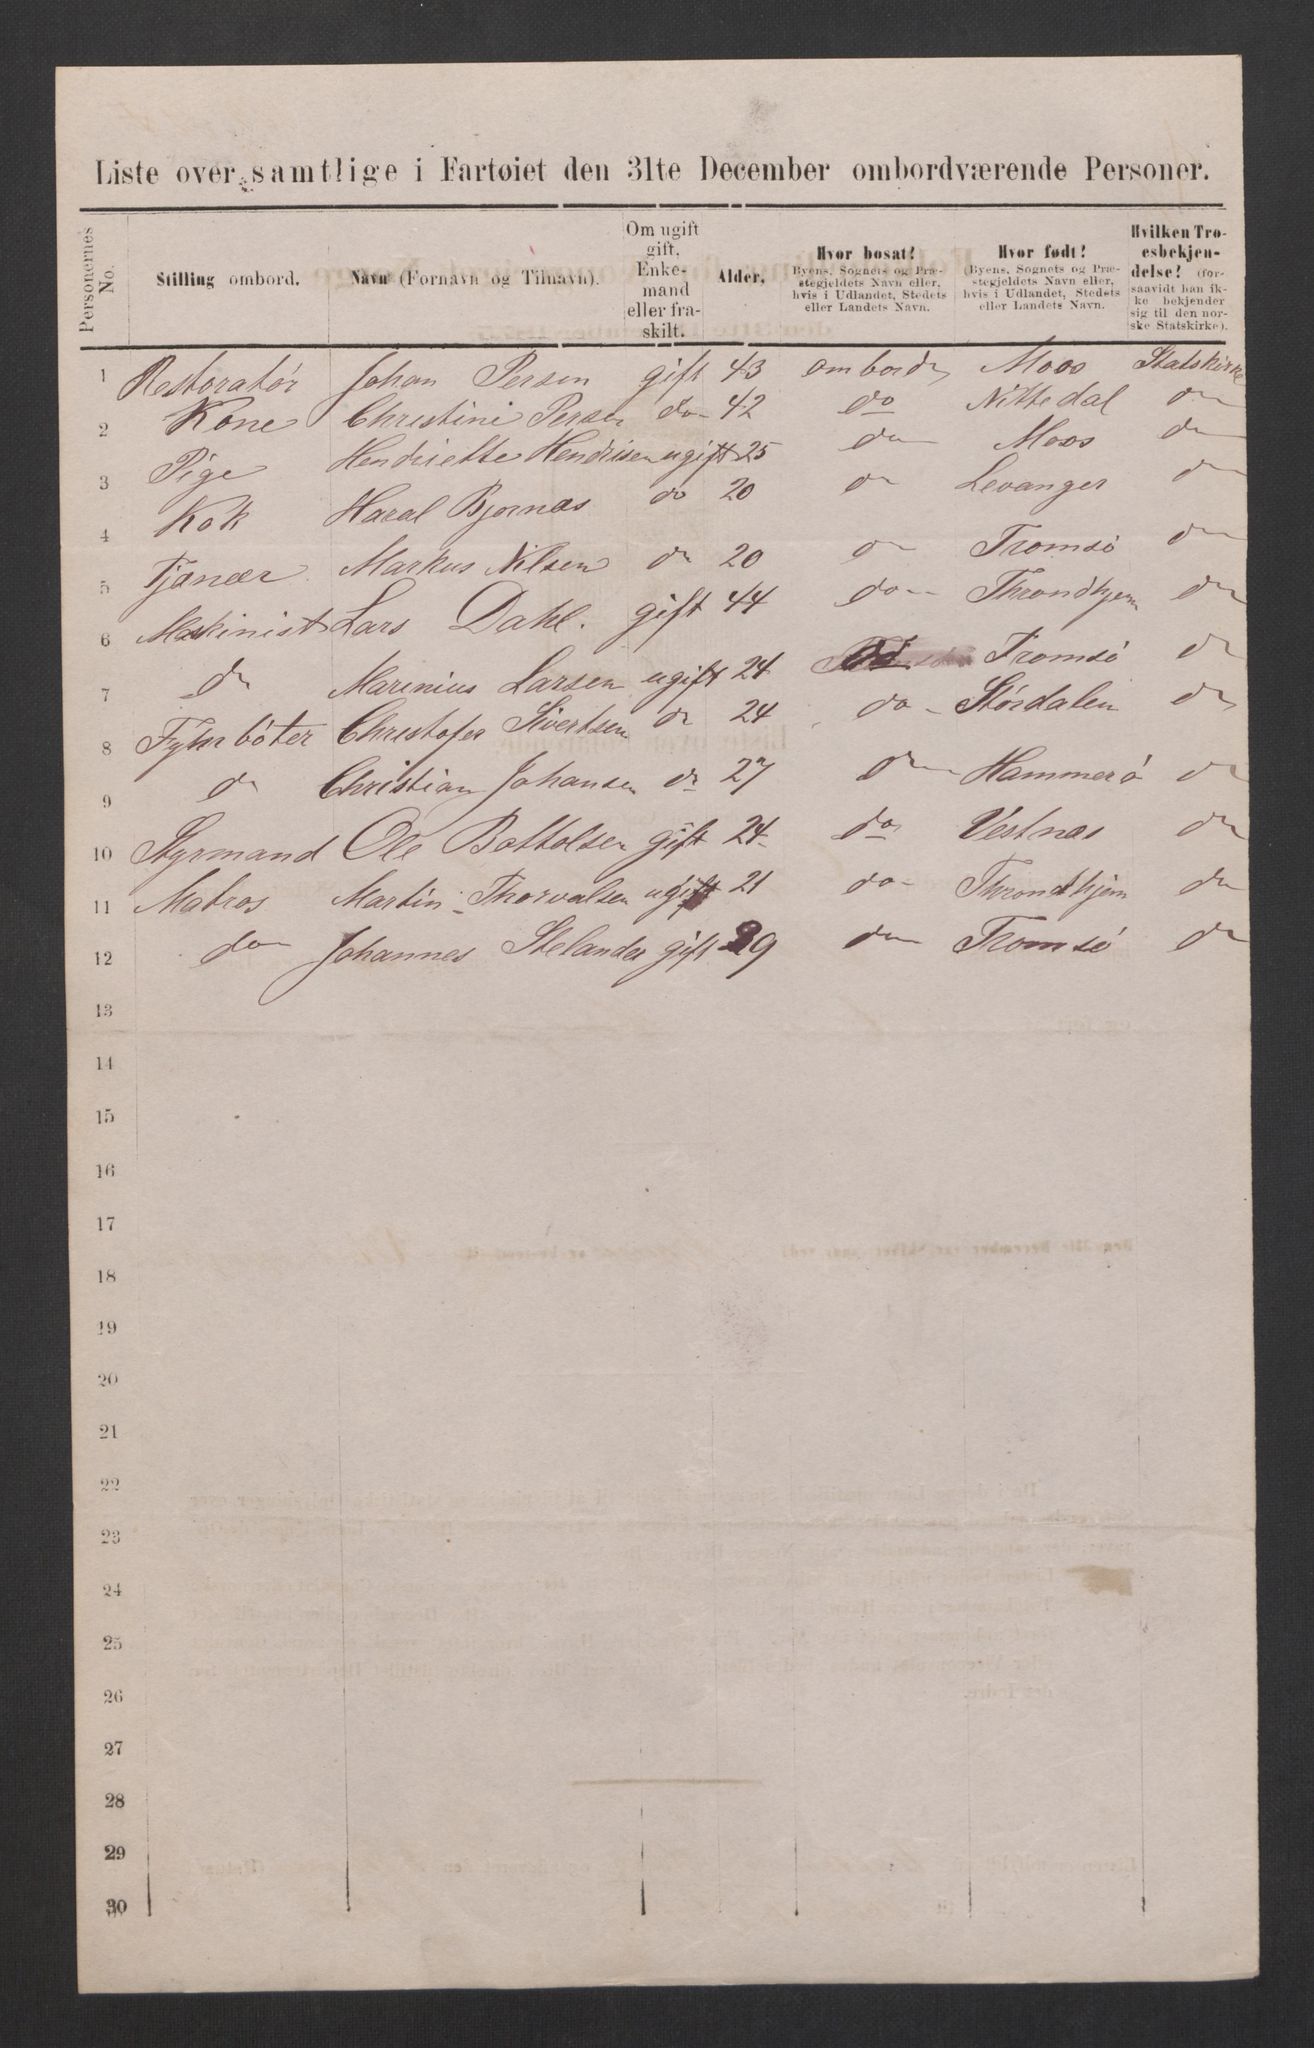 Liste over samtlige i Fartøiet den 31te December ombordværende Personer.
Personernes No.
Stilling ombord.
Navn (Fornavn og Tilnavn).
Om ugift gift, Enke-mand eller fra-skilt.
Alder.
Hvor bosat? Byens, Sognets og Præ-stegjeldets Navn eller, hvis i Udlandet, Stedets eller Landets Navn.
Hvor født? (Byens, Sognets og Præ-stegjeldets Navn eller, hvis i Udlandet, Stedets eller Landets Navn.
Hvilken Tro-esbekjen-delse? (for-saavidt han ik-ke bekjender sig til den nor-ske Statskirke).
1 Restoratør Johan Persen gift 43 ombord Moos Statskirke
2 Kone Christine Persen do 42 do Nittedal do
3 Pige Henriette Hendrisen ugift 25 do Moos do
4 Kok Haral Bjornas do 20 do Levanger do
5 Tjanær Markus Nilsen do 20 do Tromsö do
6 Maskinist Lars Dahl. gift 44 do Throndhjem do
7 do Marinius Larsen ugift 24 do Tromsö do
8 Fyhrböter Christofer Sivertsen do 24 do Stördalen do
9 do Christian Johansen do 27 do Hammerö do
10 Styrmand Ole Bottolsen gift 24 do Vestnas do
11 Matros Martin Thorvalsen ugift 21 do Throndhjem do
12 do Johannes Stelander gift 39 do Tromsö do
13
14
15
16
17
18
19
20
21
22
23
24
25
26
27
28
29
30